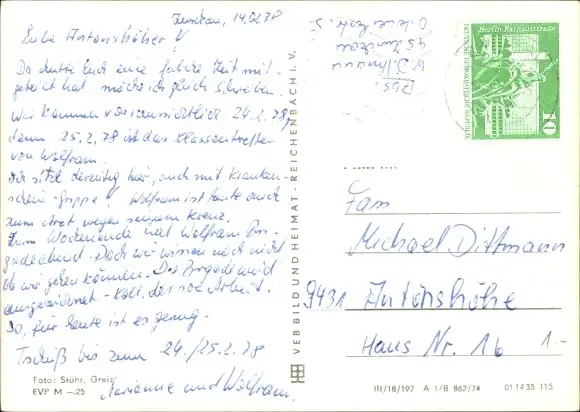 Zwickau, 14.02.78
Liebe Antonshöher!
Da Mutti Euch eine Zeit mit-
geteilt hat, möchte ich gleich schreiben.
Wir kommen voraussichtlich 24.2.78,
denn 25.2.78 ist das Klassentreffen
von Wolfram.
Ich sitze derzeitig hier, auch mit Kranken-
schein - Grippe! Wolfram ist heute auch
zum Arzt wegen seinem Kreuz.
Zum Wochenende hat Wolfram
Doch wir wissen noch nicht
ob wir gehen können. Die Brigade wird
ausgezeichnet - Koll. der soz. Arbeit.
So, für heute ist es genug.
Tschüß bis zum 24./25.2.78
Marianne und Wolfram.
Foto: Stöhr, Greiz
EVP M –.25
VEB BILD UND HEIMAT · REICHENBACH I. V.
Abs.
W. Dittmann
95 Zwickau
Berlin-Rathausstraße
DEUTSCHE DEMOKRATISCHE REPUBLIK
10
Fam
Michael Dittmann
9431 Antonshöhe
Haus Nr. 16
1.-
III/18/197 A 1/B 862/74 01 14 35 115